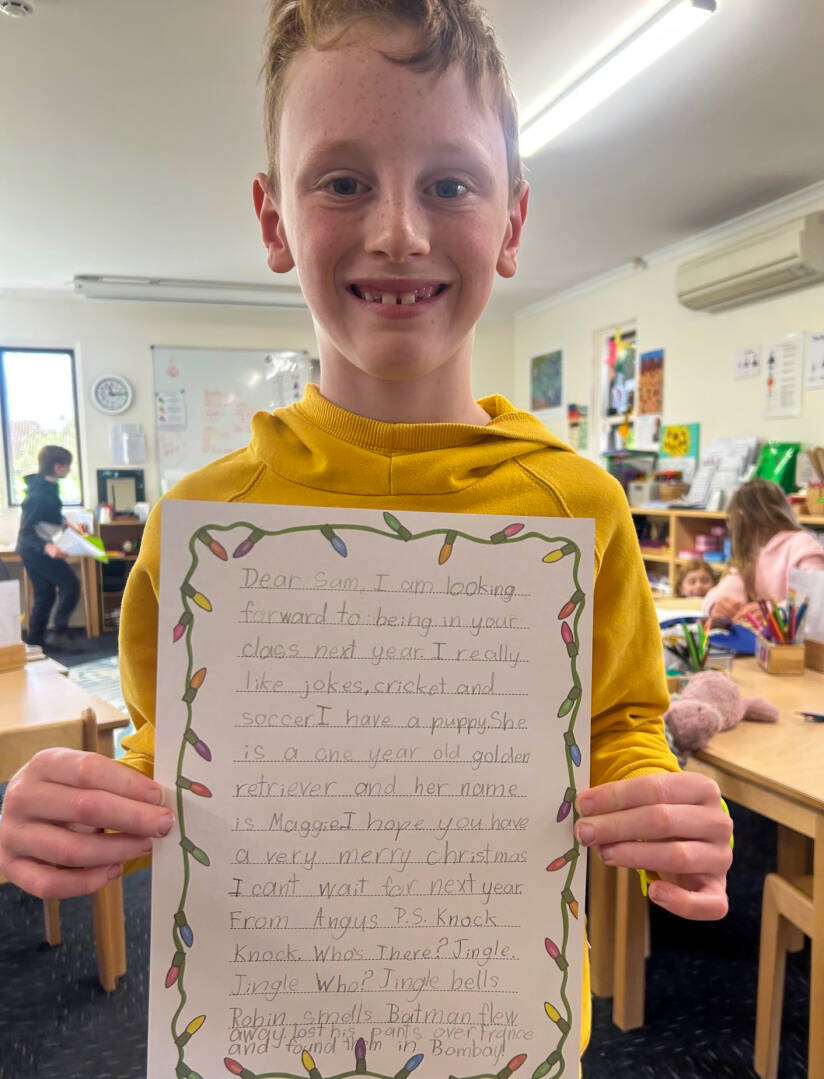 Dear Sam, I am looking
forward to being in your
class next year. I really
like jokes, cricket and
soccer. I have a puppy. She
is a one year old golden
retriever and her name
is Maggie. I hope you have
a very merry christmas
I cant wait for next year.
From Angus P.S. Knock
Knock. Who's There? Jingle.
Jingle Who? Jingle bells
Robin smells Batman flew
away lost his pants over france
and found them in Bombay!